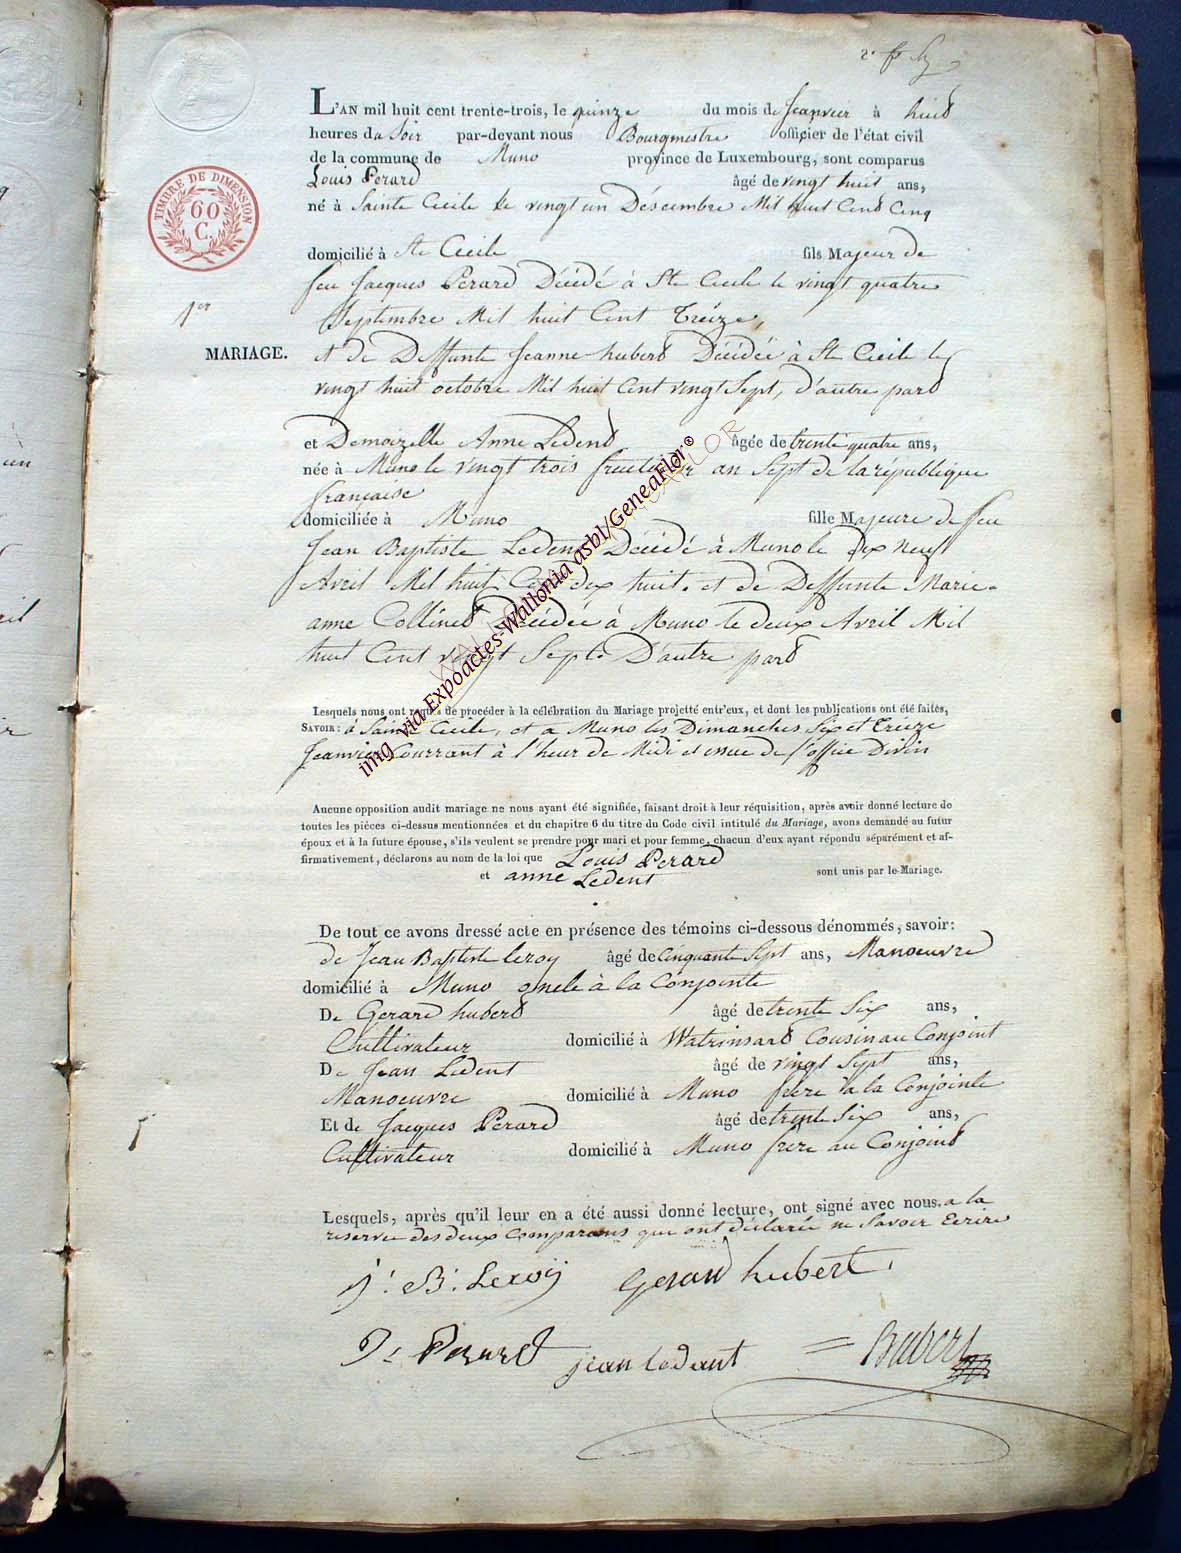 L'AN mil huit cent trente-trois, le quinze du mois de Jeanvier à huid
heures du Soir par-devant nous Bourgmestre officier de l'état civil
de la commune de Muno province de Luxembourg, sont comparus
Louis Perard âgé de vingt huit ans,
né à Sainte Cecile le vingt un Désembre Mil huit Cend Cinq
TIMBRE DE DIMENSION
60
C.
domicilié à Ste Cecile fils Majeur de
feu Jacques Perard Décédé à Ste Cecile le vingt quatre
1er
Septembre Mil huit Cent Treize,
MARIAGE.
et de Deffunte Jeanne hubert Décédée à Ste Cecile le
vingt huit octobre Mil huit Cent vingt Sept, d'autre pard
et Demoizelle Anne Ledent âgée de trente quatre ans,
née à Muno le vingt trois fructidor an Sept de la république
française
domiciliée à Muno fille Majeure de feu
Jean Baptiste Ledent Décédé à Muno le dix neuf
Avril Mil huit Cent dix huit. et de Deffunte Marie
anne Collinet Décédée à Muno le deux Avril Mil
huit Cent vingt Sept. D'autre pard
Lesquels nous ont requis de procéder à la célébration du Mariage projetté entr'eux, et dont les publications ont été faites,
SAVOIR: à Sainte Cecile, et a Muno les Dimanches Six et Treize
Jeanvier Courrant à l'heur de Midi et issue de l'office Divin
Aucune opposition audit mariage ne nous ayant été signifiée, faisant droit à leur réquisition, après avoir donné lecture de
toutes les pièces ci-dessus mentionnées et du chapitre 6 du titre du Code civil intitulé du Mariage, avons demandé au futur
époux et à la future épouse, s'ils veulent se prendre pour mari et pour femme, chacun d'eux ayant répondu séparément et af-
firmativement, déclarons au nom de la loi que Louis Perard
et anne Ledent sont unis par le Mariage.
De tout ce avons dressé acte en présence des témoins ci-dessous dénommés, savoir:
de Jean Baptiste leroy âgé de Cinquante Sept ans, Manoeuvre
domicilié à Muno oncle à la Conjointe
De Gerard hubert âgé de trente Six ans,
Cultivateur domicilié à Watrinsard Cousin au Conjoint
De Jean Ledent âgé de vingt Sept ans,
Manoeuvre domicilié à Muno frère a la Conjointe
Et de Jacques Perard âgé de trente Six ans,
Cultivateur domicilié à Muno frère au Conjoint
Lesquels, après qu'il leur en a été aussi donné lecture, ont signé avec nous. a la
reserve des deux Comparans que ont déclarée ne Savoir Ecrire
J. B. Leroÿ Gerard hubert.
J. Perard jean ledant Hubert
img via Expoactes-Wallonia asbl/GeneaFlor®